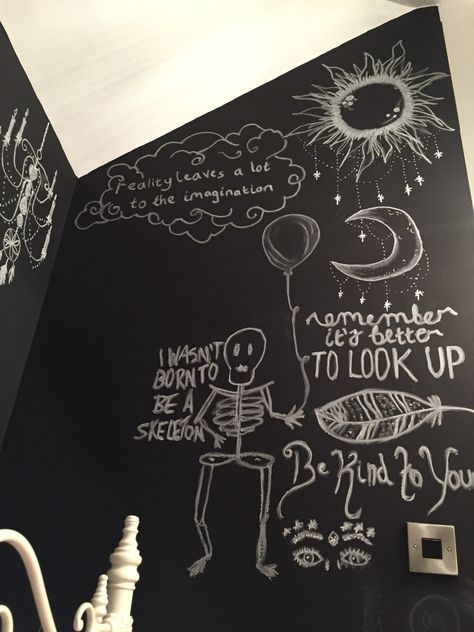 reality leaves a lot
to the imagination
remember
it's better
TO LOOK UP
I WASN'T
BORN TO
BE A
SKELETON
Be Kind to You